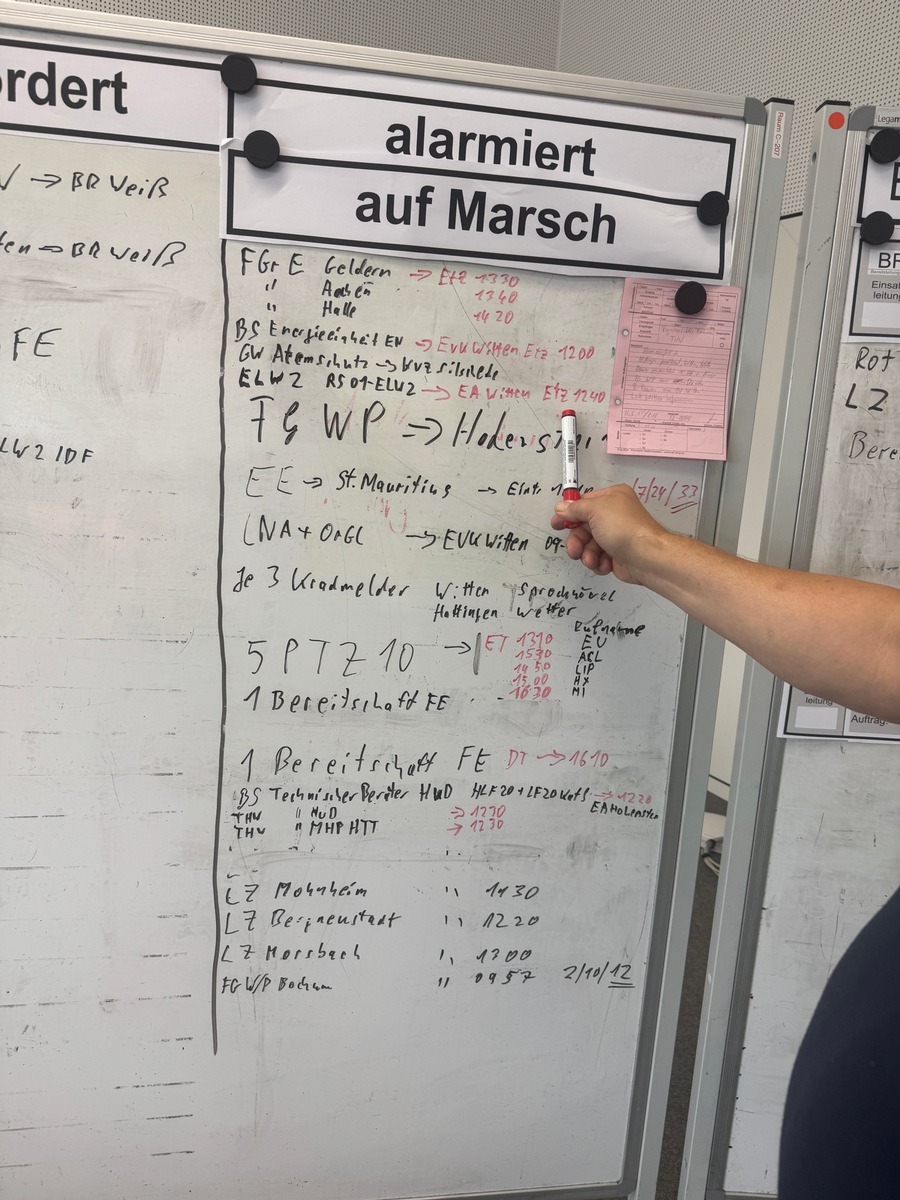 ordert
→ BR Weiß
ten → BR Weiß
FE
LW2 IDF
alarmiert
auf Marsch
FGr E Geldern → Etz 1330
" Aachen 1340
" Halle 1420
BS Energieeinheit EN → EvK Witten Etz 1200
GW Atemschutz →
ELW2 RS 01-ELW2 → EA Witten Etz 1240
FG WP ⇒
EE → St. Mauritius →
/7/24/33
LNA + OrGL → EVK Witten 09-
Je 3 Kradmelder Witten Sprockhövel
Hattingen Wetter
Rufname
5 PTZ 10 → ET 1310 EU
1530 ACL
1450 LIP
1500 HX
1630 MI
1 Bereitschaft FE
1 Bereitschaft FE DT → 1610
BS Technischer Berater HuD HLF20 + LF20 KatS → 1220
THW " HuD → 1230
THW " MHP HTT → 1230
LZ Mohnheim " 1430
LZ Bergneustadt " 1220
LZ Morsbach " 1300
FG W/P Bochum " 0957 2/10/12
Raum C-207
Legam
BR
Einsat
leitung
Rot
LZ
Bere
leitung
Auftrag: